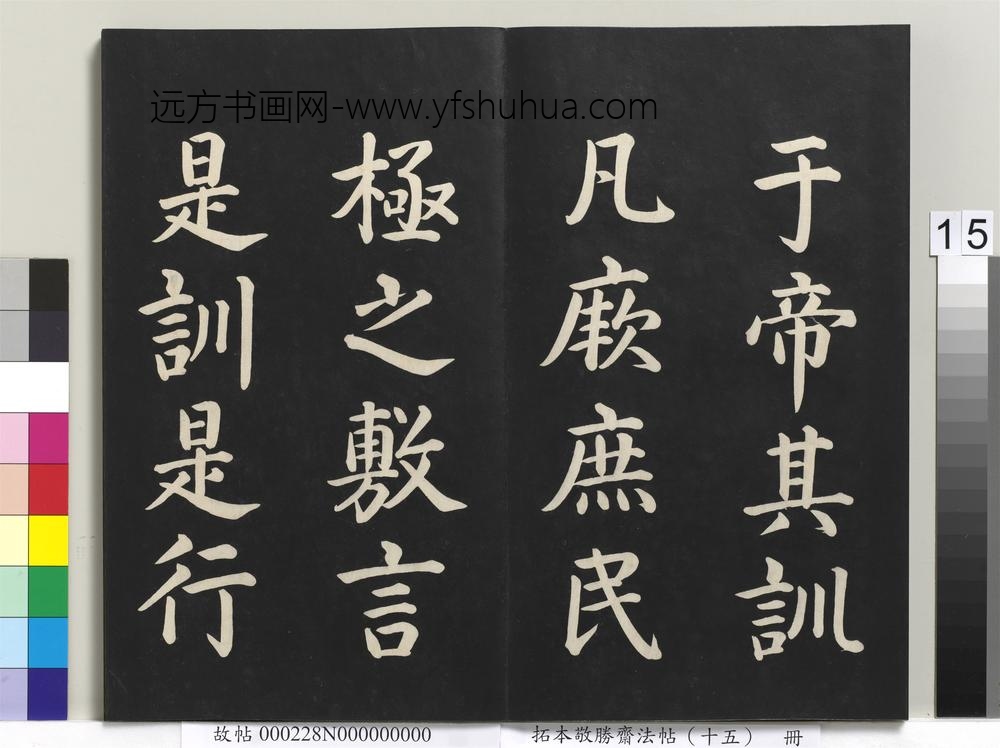 远方书画网-www.yfshuhua.com
于帝其訓
凡厥庶民
極之敷言
是訓是行
15
故帖 000228N000000000
拓本敬勝齋法帖（十五） 冊